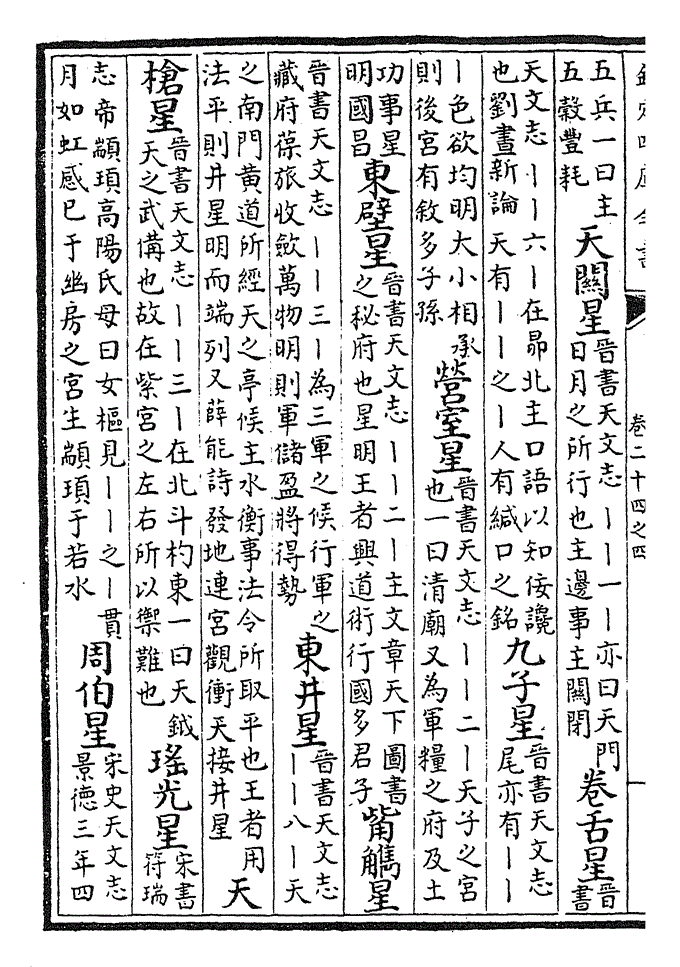 欽定四庫全書
卷二十四之四
五兵一曰主
五穀豐耗
天關星
晉書天文志丨丨一丨亦曰天門
日月之所行也主邊事主關閉
卷舌星
晉
書
天文志丨丨六丨在昴北主口語以知佞讒
也劉畫新論天有丨丨之丨人有緘口之銘
九子星
晉書天文志
尾亦有丨丨
丨色欲均明大小相承
則後宮有敘多子孫
營室星
晉書天文志丨丨二丨天子之宮
也一曰清廟又為軍糧之府及土
功事星
明國昌
東壁星
晉書天文志丨丨二丨主文章天下圖書
之秘府也星明王者興道術行國多君子
觜觿星
晉書天文志丨丨三丨為三軍之候行軍之
藏府葆旅收斂萬物明則軍儲盈將得勢
東井星
晉書天文志
丨丨八丨天
之南門黃道所經天之亭候主水衡事法令所取平也王者用
法平則井星明而端列又薛能詩發地連宮觀衝天接井星
天
槍星
晉書天文志丨丨三丨在北斗杓東一曰天鉞
天之武備也故在紫宮之左右所以禦難也
瑤光星
宋書
符瑞
志帝顓頊高陽氏母曰女樞見丨丨之丨貫
月如虹感已于幽房之宮生顓頊于若水
周伯星
宋史天文志
景德三年四